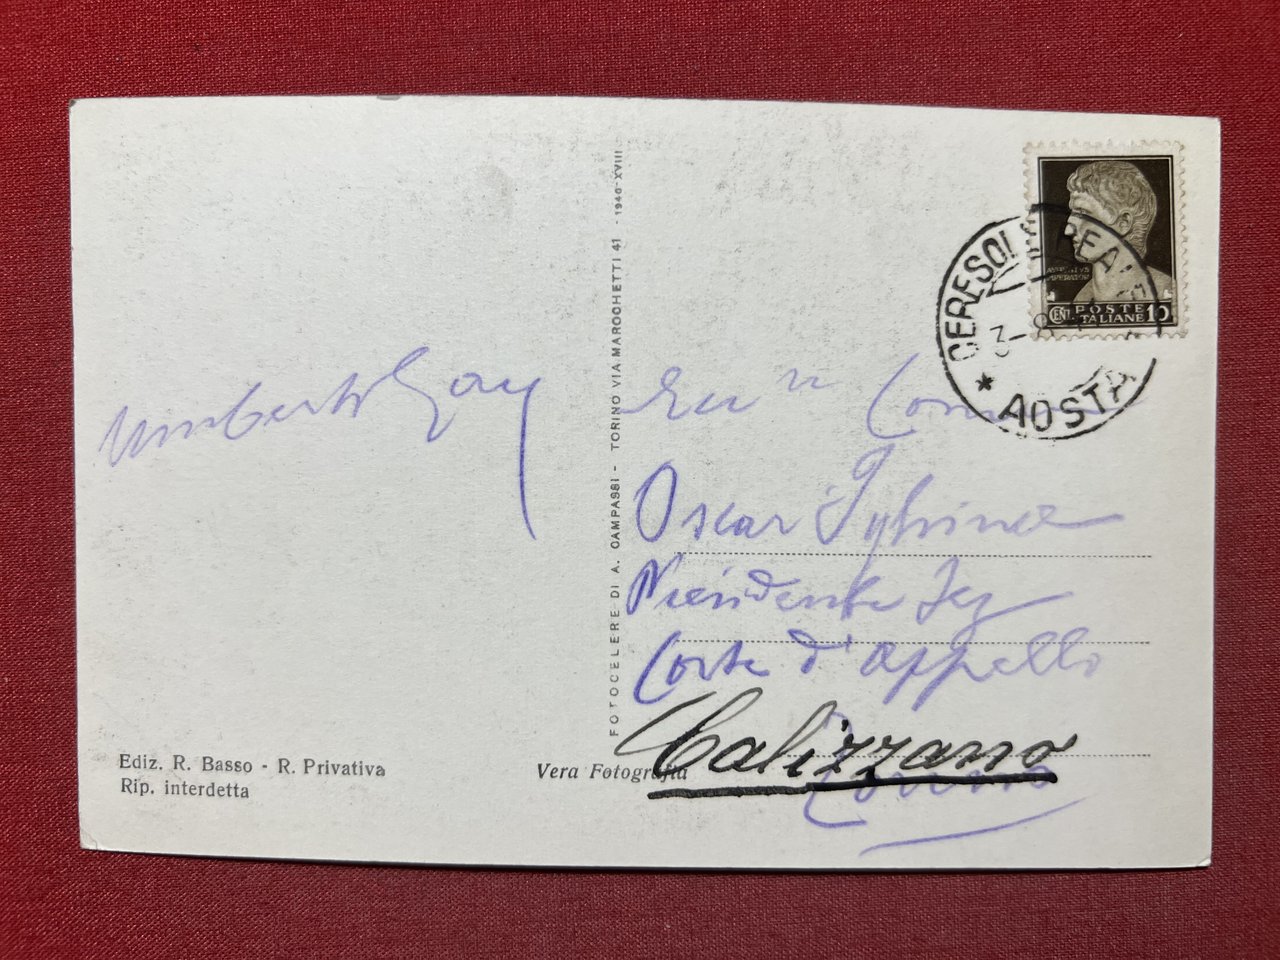 Umberto Gay
Ediz. R. Basso - R. Privativa
Rip. interdetta
FOTOCELERE DI A. CAMPASSI - TORINO VIA MAROCHETTI 41 - 1940-XVIII
Vera Fotografia
CERESOLE REALE
3-8
* AOSTA
POSTE
CENT ITALIANE 10
Oscar
Presidente Sez
Corte d'Appello
Calizzano
Torino